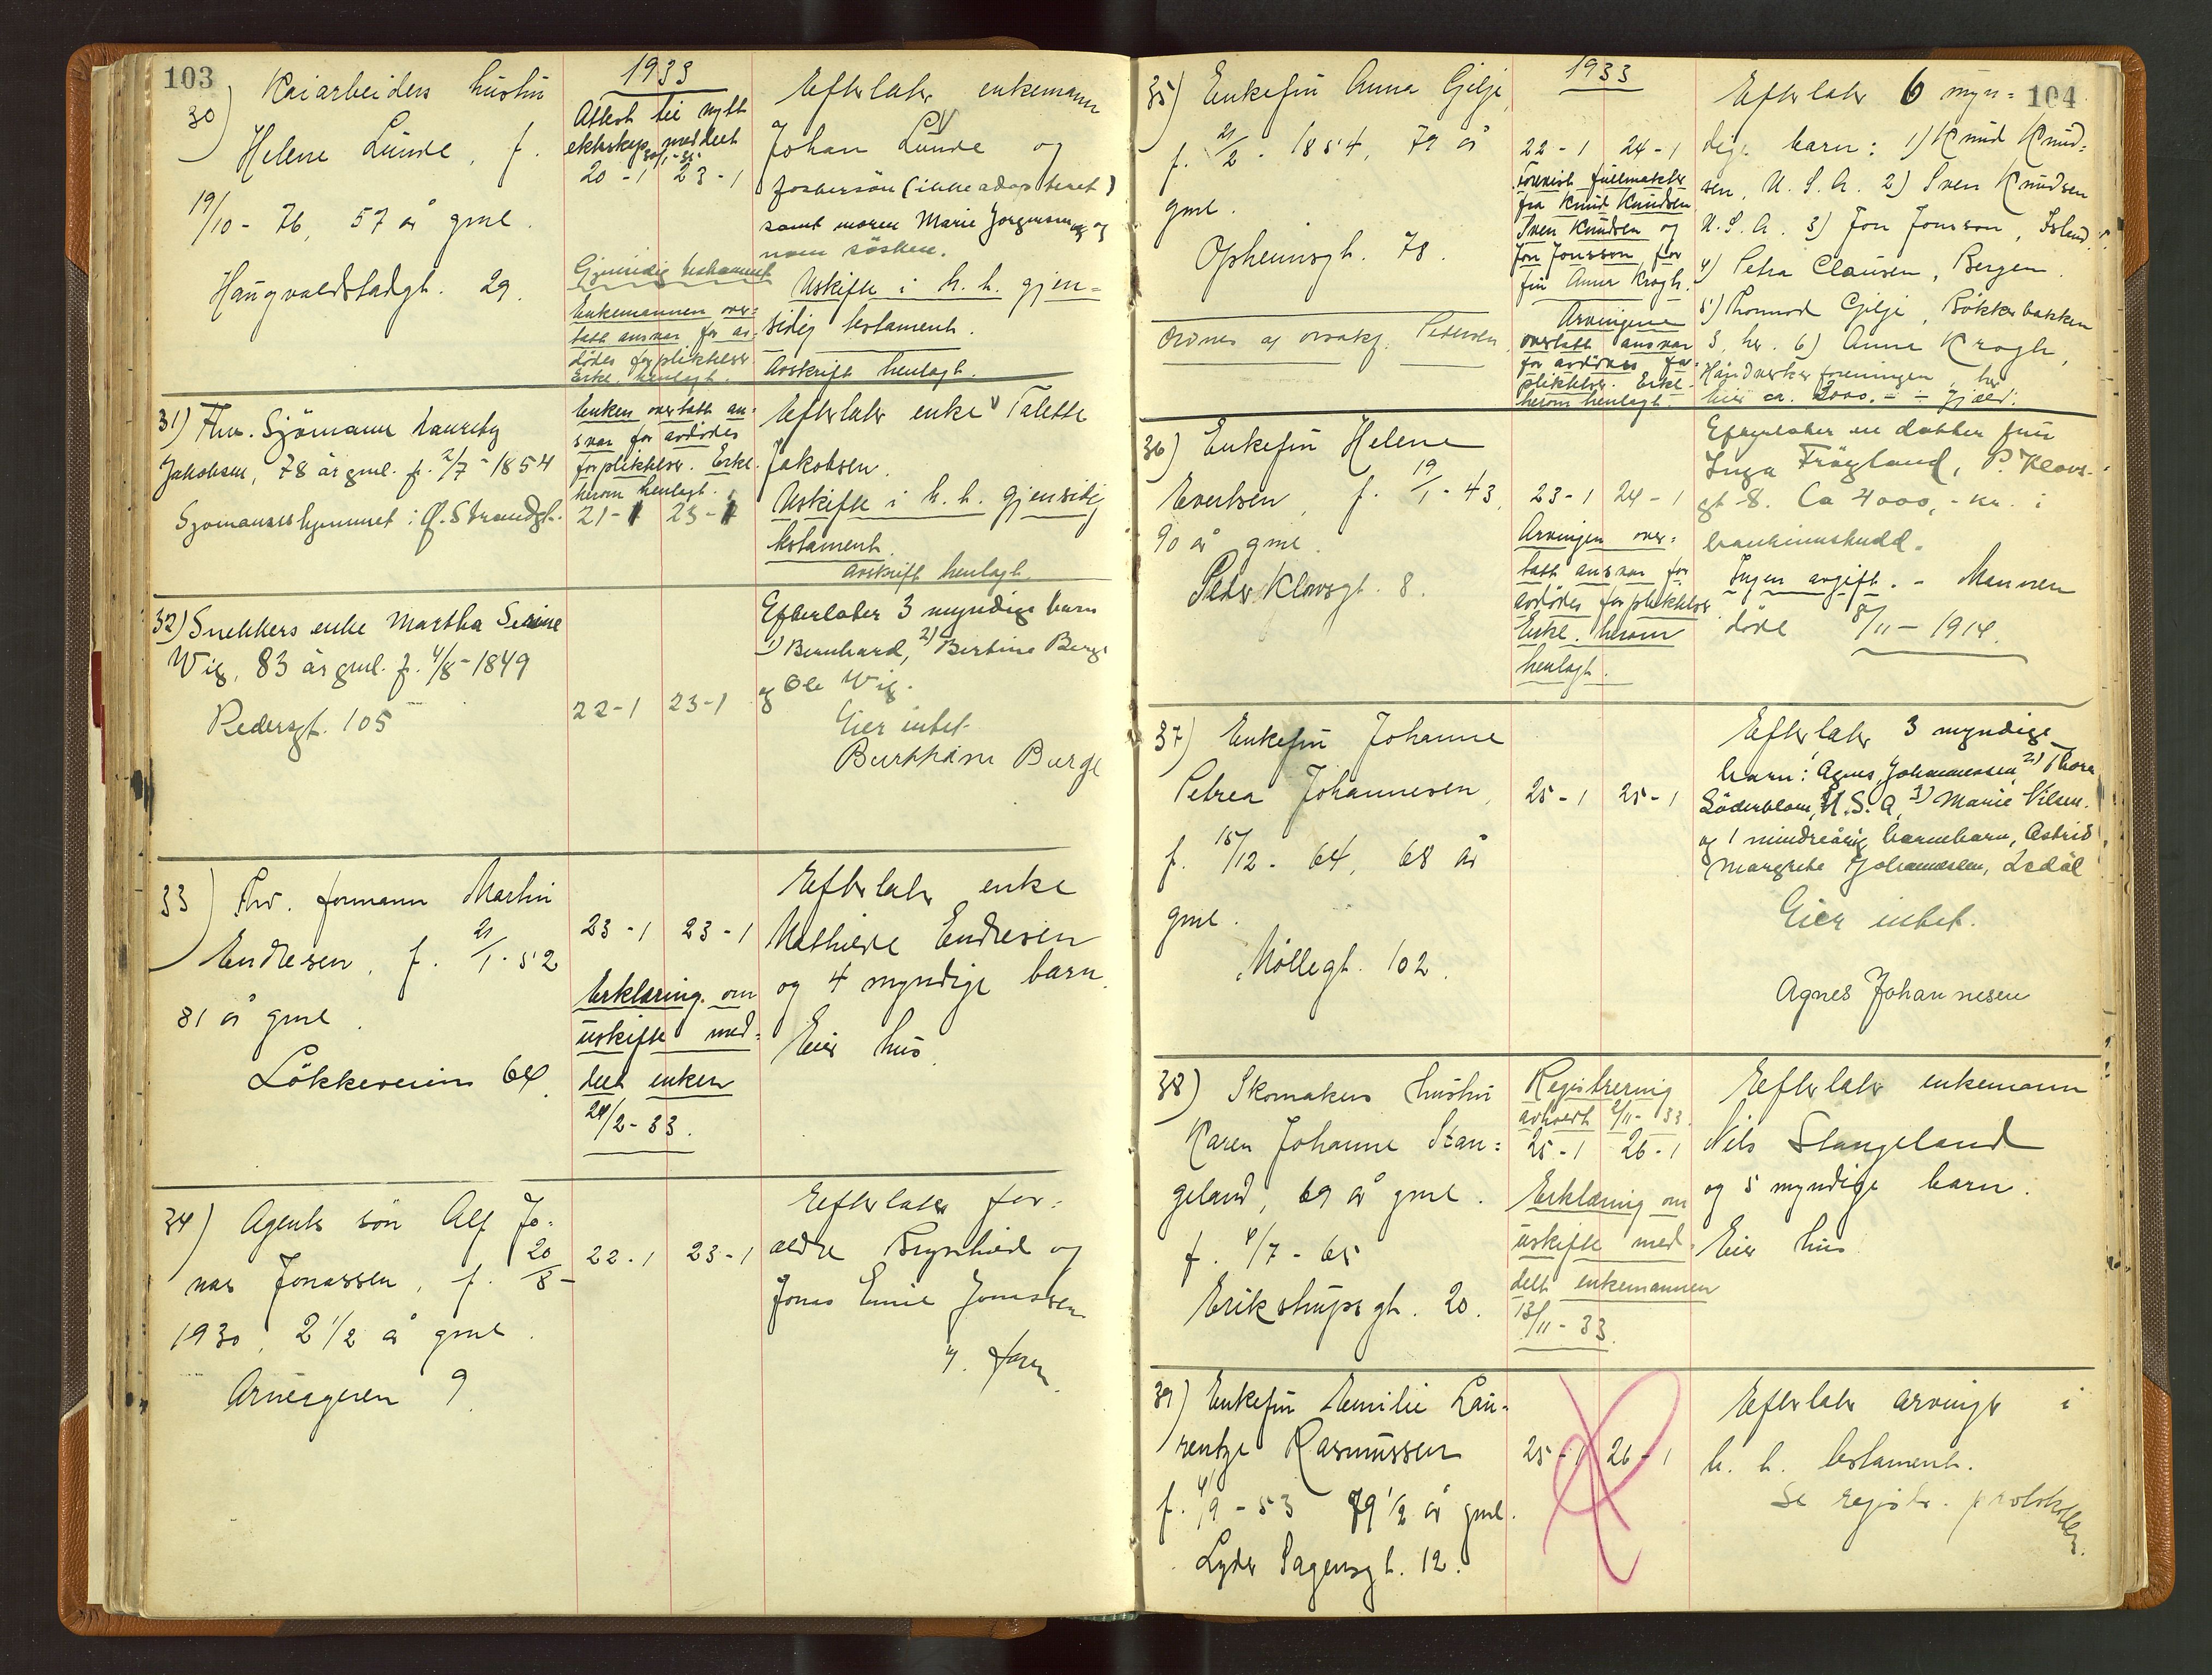 103
1933
30) Kaiarbeiders hustru
Helene Lunde, f.
19/10 - 76, 57 år gml.
Haugvaldstadgt. 29.
Attest til nytt
ekteskap meddelt
20-1 23-1
Gjensidig testament
Enkemannen over-
tatt ansvar for av-
dödes forpliktelser
Erkl. henlagt.
Efterlater enkemann
Johan Lunde og
fostersön (ikke adoptert)
samt moren Marie Jorgensen og
noen sösken.
Uskifte i h. h. gjen-
sidig testament.
Avskrift henlagt.
31) Fhv. Sjömann Lauritz
Jakobsen, 78 år gml. f. 2/7 - 1854
Sjomannshjemmet i Ø. Strandgt.
Enken overtatt an-
svar for avdödes
forpliktelser. Erkl.
herom henlagt.
21-1 23-1
Efterlater enke Talette
Jakobsen.
Uskifte i h. h. gjensidig
testament.
Avskrift henlagt.
32) Snekkers enke Martha Serine
Wig, 83 år gml. f. 4/8 - 1849
Pedersgt. 105
22-1 23-1
Efterlater 3 myndige barn
1) Bernhard, 2) Bertine Berge
og Ole Wig.
Eier intet.
33) Fhv. formann Martin
Endresen, f. 21/1 - 52
81 år gml.
Lökkeveien 64.
23-1 23-1
Erklæring om
uskifte med-
delt enken
24/2 - 33.
Efterlater enke
Mathilde Endresen
og 4 myndige barn.
Eier hus.
34) Agents sön Alf Jo-
nas Jonassen, f. 20/8 -
1930, 2 1/2 år gml.
Arneageren 9.
22-1 23-1
Efterlater for-
ældre Brynhild og
Jonas Emil Jonassen
104
1933
35) Enkefru Anna Gilje,
f. 21/2 - 1854, 79 år
gml.
Opheimsgt. 78.
Ordnes av Petersen.
22-1 24-1
Forevist fullmakter
fra Knud Knudsen
Sven Knudsen og
Jon Jonsson for
fru Anna Krogh.
Arvingene
overtatt ansvar
for avdödes for-
pliktelser. Erkl.
herom henlagt.
Efterlater 6 myn-
dige barn: 1) Knud Knud-
sen, U. S. A. 2) Sven Knudsen
U. S. A. 3) Jon Jonsson, Island.
4) Petra Clausen, Bergen.
5) Thormod Gilje, Bökkerbakken
3, her. 6) Anna Krogh,
Håndverkerforeningen, her
eier ca. 2000.- gjæld.
36) Enkefru Helene
Evertsen, f. 19/1 - 43,
90 år gml.
Peder Klowsgt. 8.
23-1 24-1
Arvingen over-
tatt ansvar for
avdödes forpliktelser
Erkl. herom
henlagt.
Efterlater en datter fru
Inga Frögland, P. Klows-
gt 8. Ca 4000,- kr. i
bankinnskudd.
Ingen avgift. - Mannen
döde 8/11 - 1914.
37) Enkefru Johanne
Petrea Johannesen,
f. 15/12 - 64, 68 år
gml.
Möllegt. 102.
25-1 25-1
Efterlater 3 myndige
barn: Agnes Johannessen, 2) Thora
Söderblom, U. S. A, 3) Marie Nilsen.
og 1 mindreårig barnebarn, Astrid
Margrethe Johannesen,
Eier intet.
Agnes Johannesen
38) Skomakers hustru
Karen Johanne Stan-
geland, 69 år gml.
f. /7 - 65
Erikstrupsgt. 20.
Registrering
avholdt 2/11 - 33.
25-1 26-1
Erklæring om
uskifte med-
delt enkemannen
13/11 - 33.
Efterlater enkemann
Nils Stangeland
og 5 myndige barn.
Eier hus
39) Enkefru Emilie Lau-
rentze Rasmussen
f. 4/9 - 53 79 1/2 år gml.
Lyder Sagensgt. 12.
25-1 26-1
Efterlater arvinger i
h. h. testament.
Se registr. protokollen.